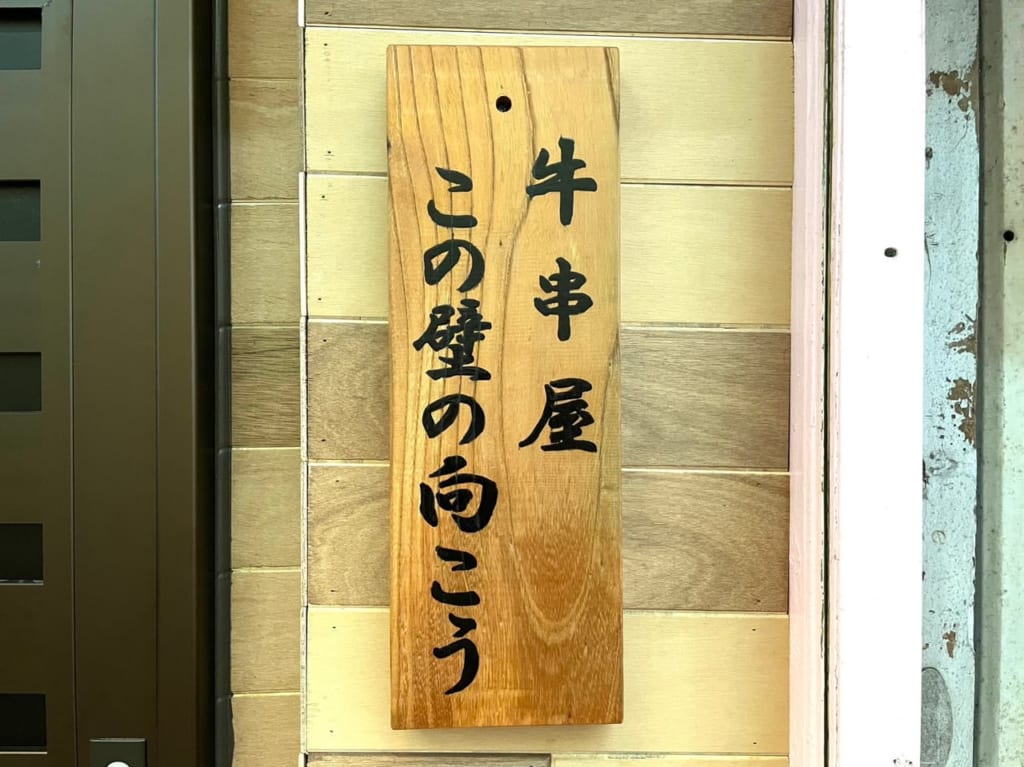 牛串屋
この壁の向こう